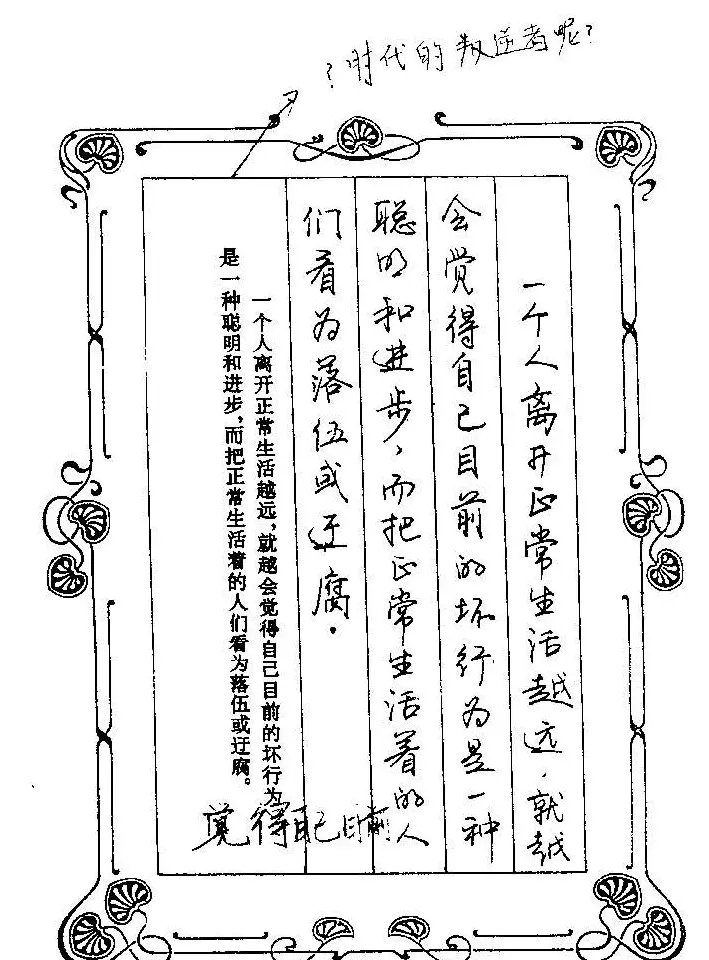 ?时代的叛逆者呢?
一个人离开正常生活越远,就越
会觉得自己目前的坏行为是一种
聪明和进步,而把正常生活着的人
们看为落伍或迂腐.
一个人离开正常生活越远,就越会觉得自己目前的坏行为
是一种聪明和进步,而把正常生活着的人们看为落伍或迂腐。
觉得自己目前